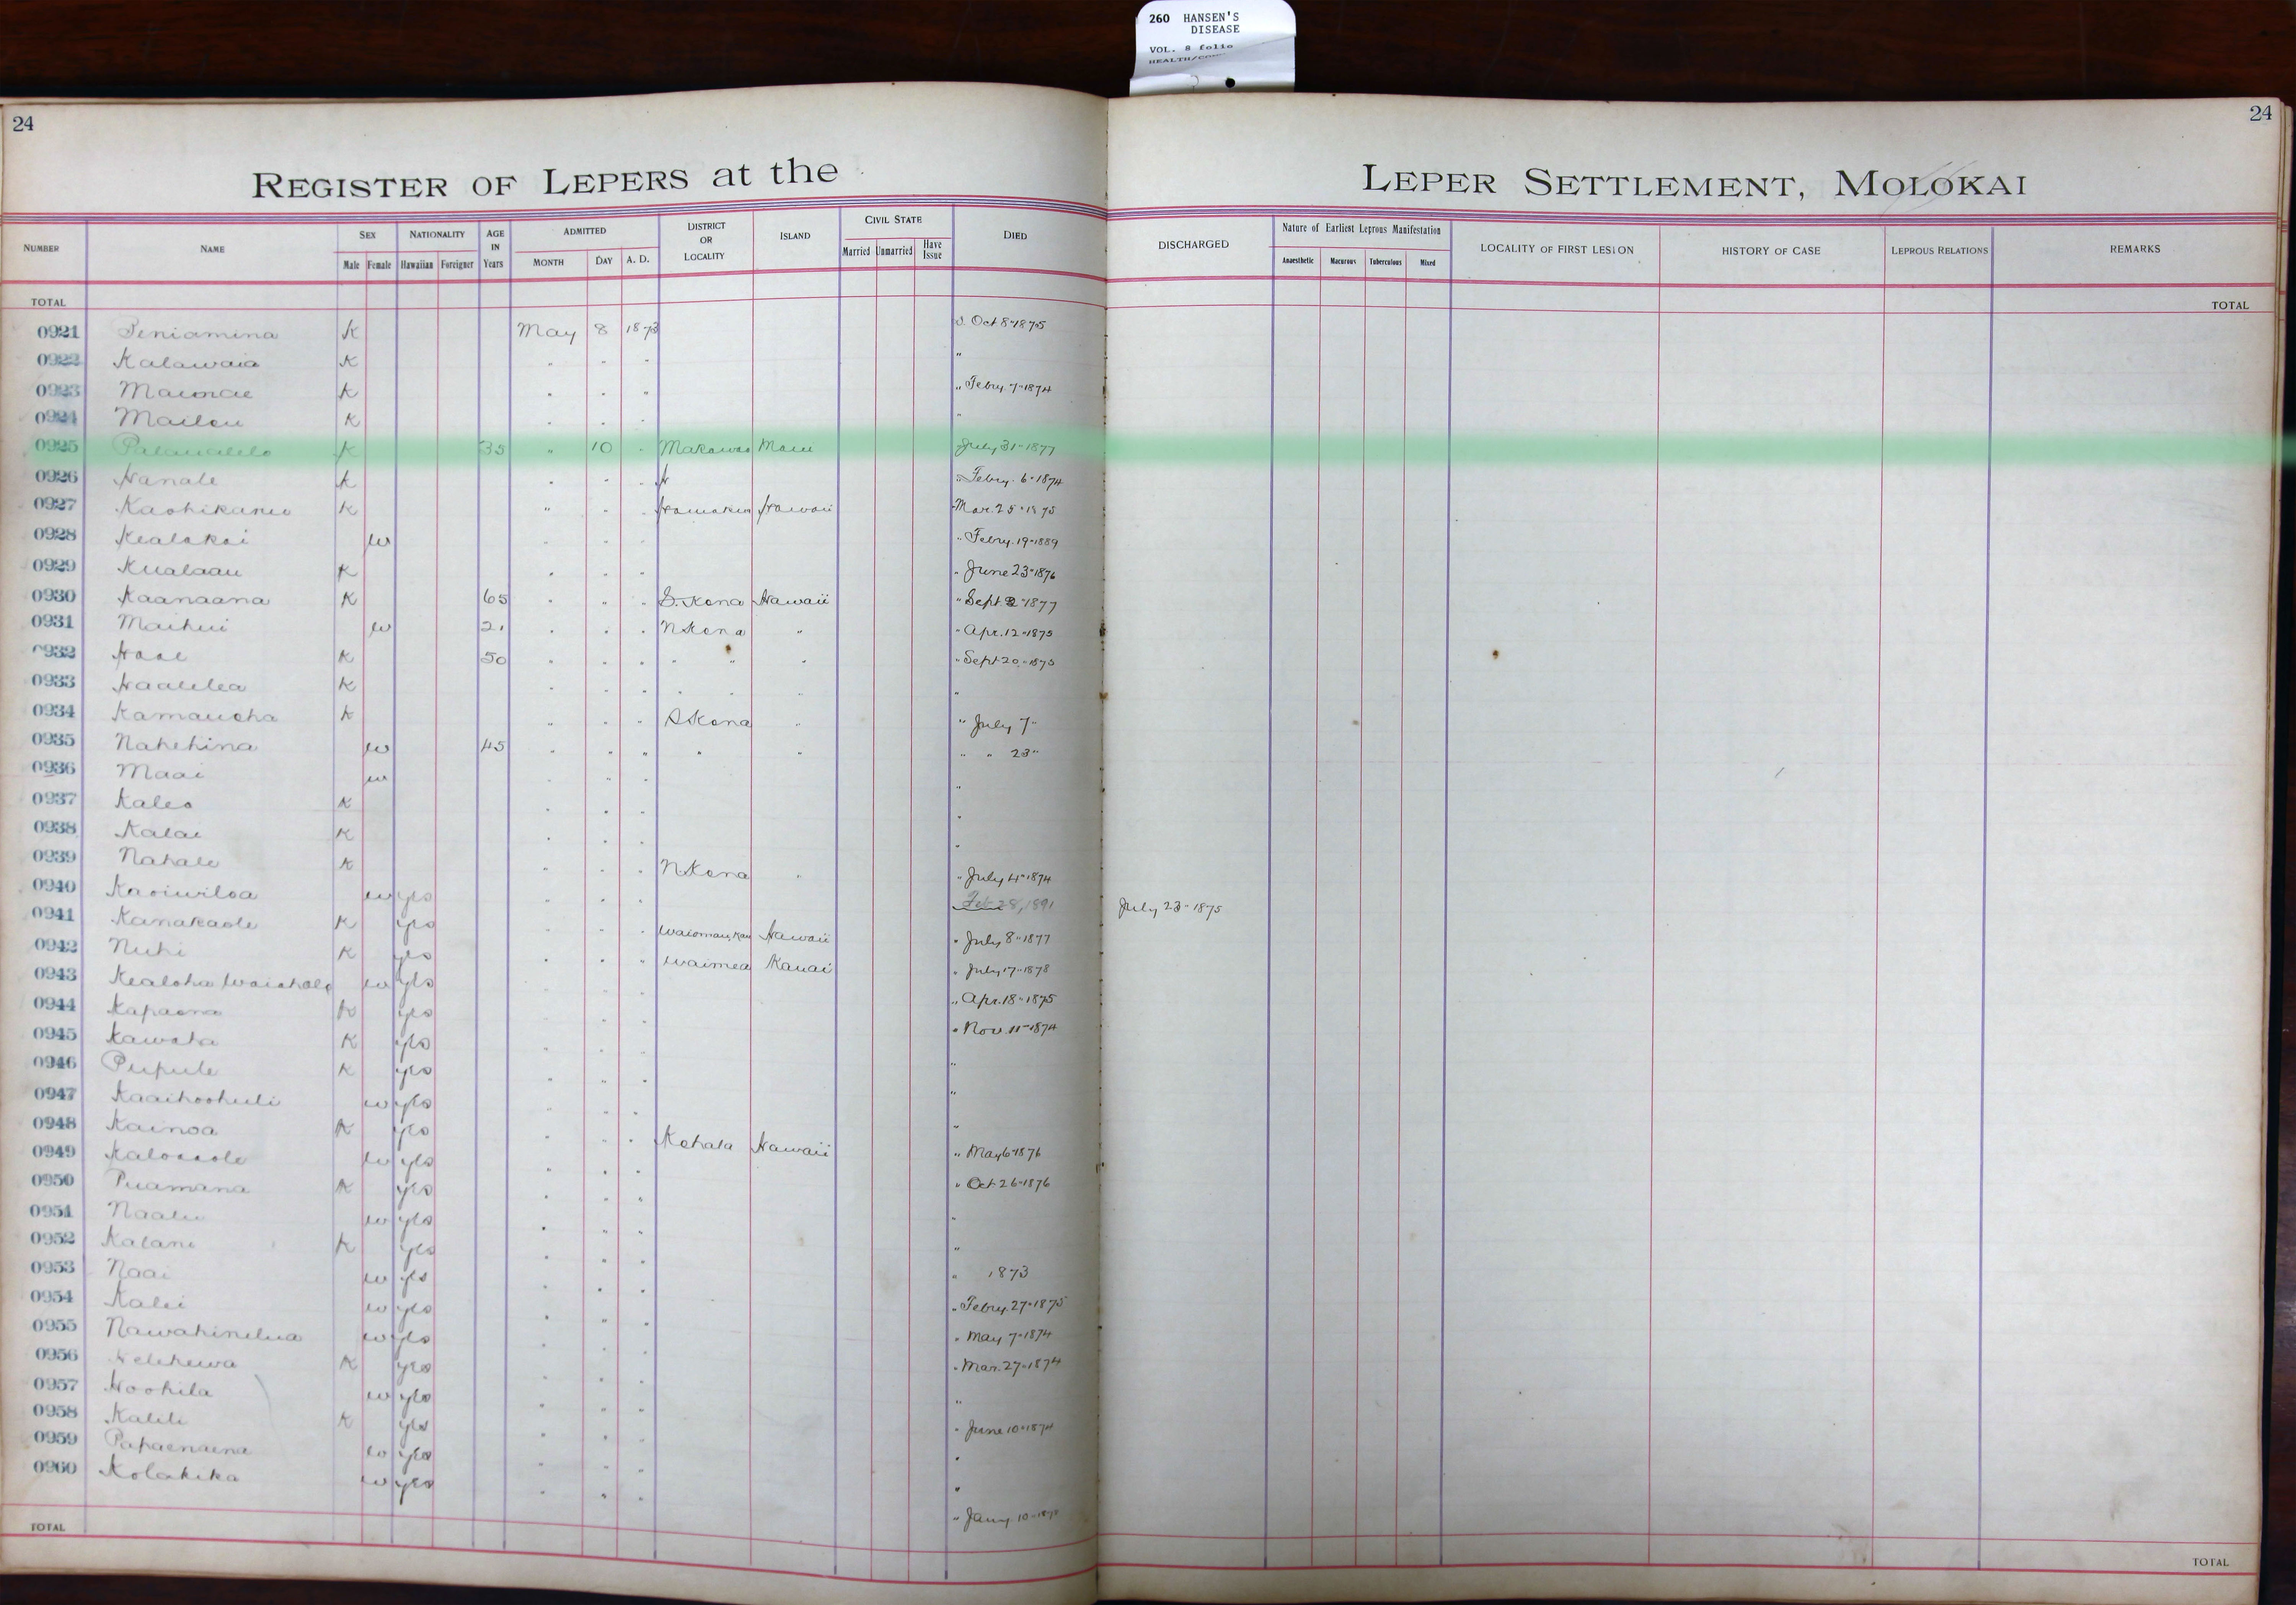 260 HANSEN'S
DISEASE
VOL. 8 folio
24
24
REGISTER OF LEPERS at the LEPER SETTLEMENT, MOLOKAI
NUMBER NAME SEX NATIONALITY AGE IN Years ADMITTED DISTRICT OR LOCALITY ISLAND CIVIL STATE DIED DISCHARGED Nature of Earliest Leprous Manifestation LOCALITY OF FIRST LESION HISTORY OF CASE LEPROUS RELATIONS REMARKS
Male Female Hawaiian Foreigner MONTH DAY A. D. Married Unmarried Have Issue Anaesthetic Macurous Tuberculous Mixed
TOTAL TOTAL
0921 Peniamina K May 8 1873 Oct 8 " 1875
0922 Kalawaia K " " " "
0923 Maunae K " " " " Febry. 7 " 1874
0924 K " " " "
0925 K 35 " 10 " Makawao Maui July 31 " 1877
0926 Hanale K " " " " Febry. 6 " 1874
0927 K " " " Hamakua Hawaii Mar. 25 " 1875
0928 Kealakai w " " " " Febry. 19 " 1889
0929 Kualaau K " " " " June 23 " 1876
0930 Kaanaana K 65 " " " S. Kona Hawaii " Sept 2 " 1877
0931 Maihui w 21 " " " N Kona " " Apr. 12 " 1875
0932 K 50 " " " " " " " Sept 20 " 1875
0933 Haalelea K " " " " " " "
0934 Kamauoha K " " " S Kona " " July 7 "
0935 Nahehina w 45 " " " " " " " 23 "
0936 Maai w " " " "
0937 Kaleo K " " " "
0938 Kalai K " " " "
0939 Nahale K " " " N Kona " " July 4 " 1874
0940 Kaoiwiloa w yes " " " Feb 28, 1891 July 23 " 1875
0941 Kanakaole K yes " " " Hawaii " July 8 " 1877
0942 Nuhi K yes " " " Waimea Kauai " July 17 " 1878
0943 Kealoha w yes " " " " Apr. 18 " 1875
0944 Kapaona K yes " " " " Nov. 11 " 1874
0945 Kawaha K yes " " " "
0946 Pupule K yes " " " "
0947 Kaaihoohuli w yes " " " "
0948 Kainoa K yes " " " Kohala Hawaii " May 6 " 1876
0949 w yes " " " " Oct 26 " 1876
0950 Puamana K yes " " " "
0951 Naalu w yes " " " "
0952 Kalani K yes " " " " 1873
0953 Naai w yes " " " " Febry. 27 " 1875
0954 Kalei w yes " " " " May 7 " 1874
0955 Nawahinelua w yes " " " " Mar. 27 " 1874
0956 Kelehewa K yes " " " "
0957 Hoohila w yes " " " " June 10 " 1874
0958 Kalili K yes " " " "
0959 Papaenaena w yes " " " "
0960 Kolakika w yes " " " " Jany. 10 "
TOTAL TOTAL